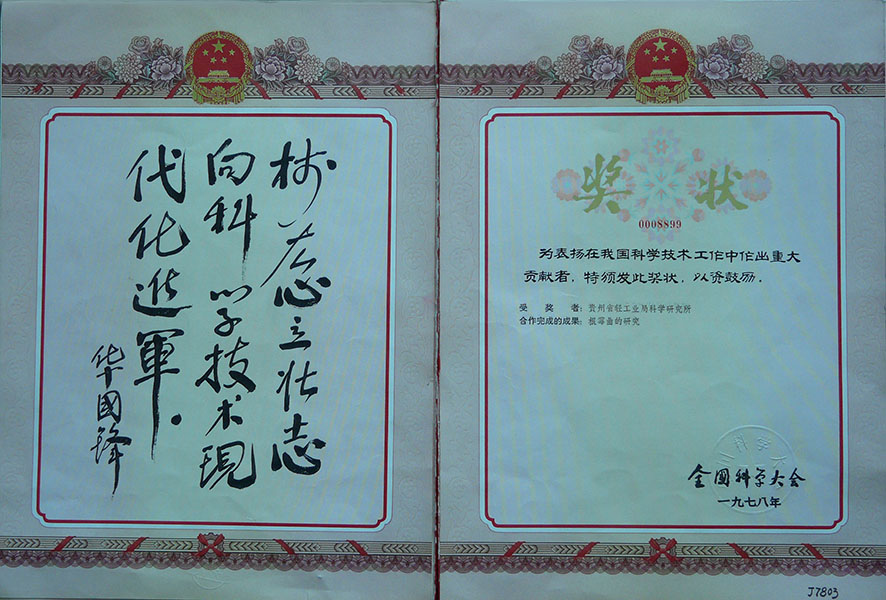 树雄心立壮志
向科学技术現
代化進軍。
华國鋒
奖状
0008899
为表扬在我国科学技术工作中作出重大
贡献者，特颁发此奖状，以资鼓励。
受奖者：贵州省轻工业局科学研究所
合作完成的成果：根霉曲的研究
全国科学大会
一九七八年
J7803